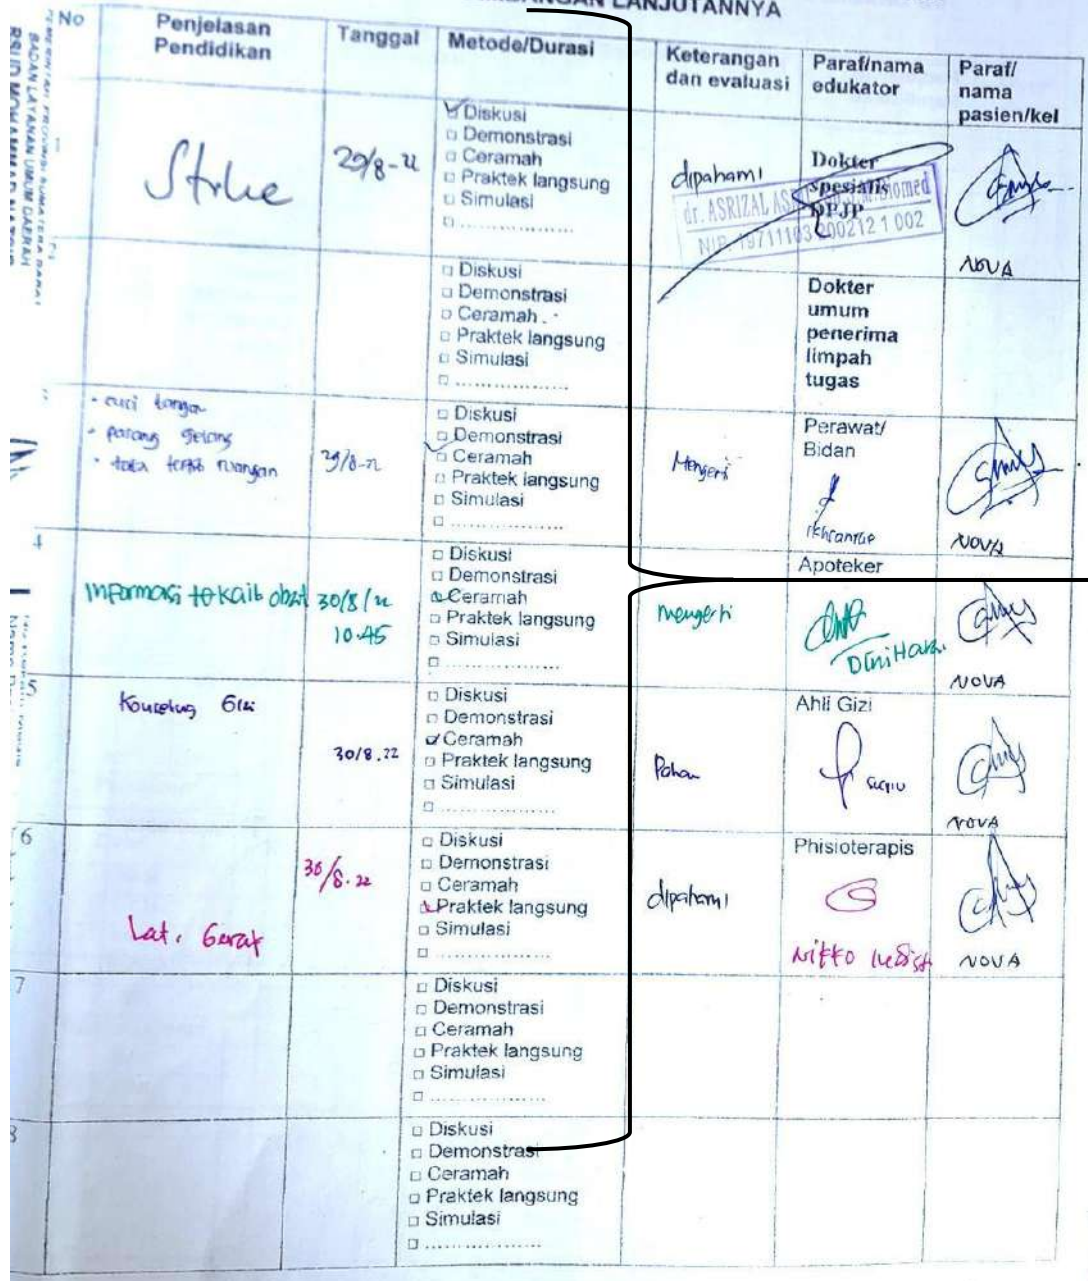 LANJUTANNYA
No
Penjelasan
Pendidikan
Tanggal
Metode/Durasi
Keterangan
dan evaluasi
Paraf/nama
edukator
Paraf/
nama
pasien/kel
29/8-22
Diskusi
Demonstrasi
Ceramah
Praktek langsung
Simulasi
..................
dipahami
Dokter
spesialis
DPJP
dr. ASRIZAL
NIP. 19711103 200212 1 002
NOVA
Diskusi
Demonstrasi
Ceramah
Praktek langsung
Simulasi
..................
Dokter
umum
penerima
limpah
tugas
- cuci tangan
- pasang gelang
- tata tertib ruangan
29/8-22
Diskusi
Demonstrasi
Ceramah
Praktek langsung
Simulasi
..................
Mengerti
Perawat/
Bidan
NOVA
4
Informasi terkait obat
30/8/22
10.45
Diskusi
Demonstrasi
Ceramah
Praktek langsung
Simulasi
..................
mengerti
Apoteker
NOVA
5
Konseling Gizi
30/8.22
Diskusi
Demonstrasi
Ceramah
Praktek langsung
Simulasi
..................
Paham
Ahli Gizi
NOVA
6
Lat. Gerak
30/8.22
Diskusi
Demonstrasi
Ceramah
Praktek langsung
Simulasi
..................
dipahami
Phisioterapis
NOVA
7
Diskusi
Demonstrasi
Ceramah
Praktek langsung
Simulasi
..................
8
Diskusi
Demonstrasi
Ceramah
Praktek langsung
Simulasi
..................
BADAN LAYANAN UMUM DAERAH